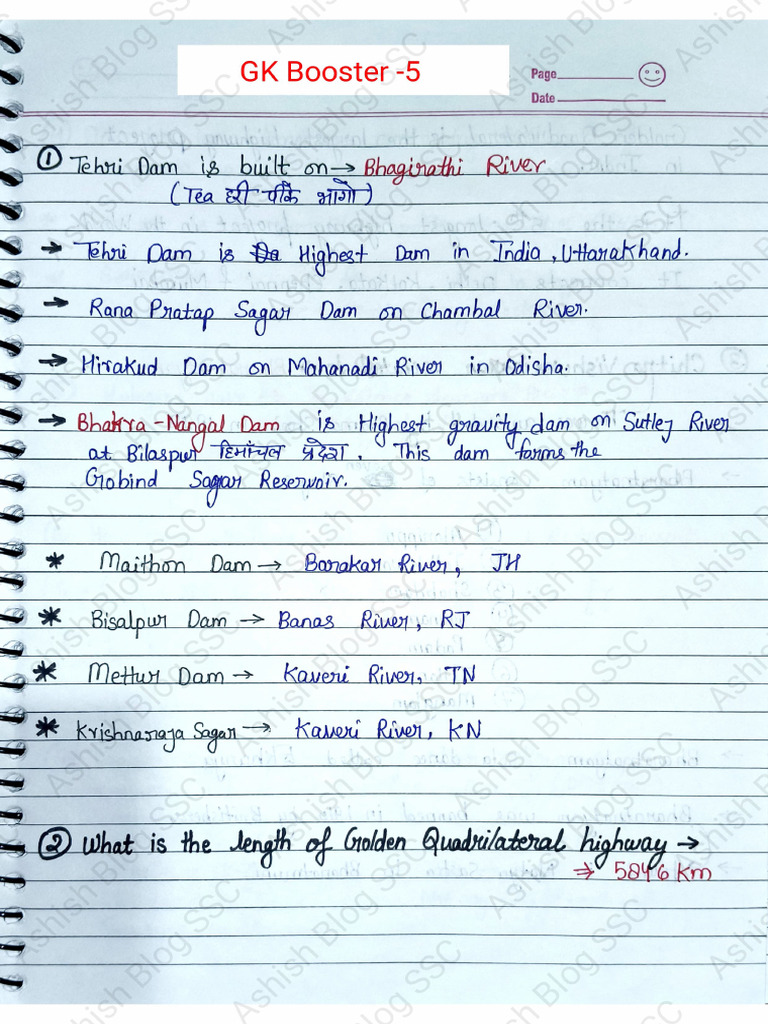 GK Booster -5
Page
Date
① Tehri Dam is built on → Bhagirathi River
(Tea हरी पीके भागो)
→ Tehri Dam is Highest Dam in India, Uttarakhand.
→ Rana Pratap Sagar Dam on Chambal River.
→ Hirakud Dam on Mahanadi River in Odisha.
→ Bhakra-Nangal Dam is Highest gravity dam on Sutlej River
at Bilaspur हिमांचल प्रदेश. This dam forms the
Gobind Sagar Reservoir.
* Maithon Dam → Barakar River, JH
* Bisalpur Dam → Banas River, RJ
* Mettur Dam → Kaveri River, TN
* Krishnaraja Sagar → Kaveri River, KN
② What is the length of Golden Quadrilateral highway →
⇒ 5846 km
Ashish Blog SSC